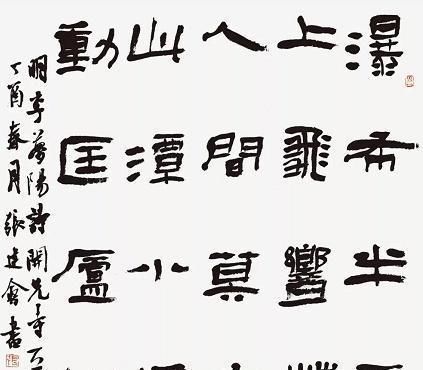 瀑布半
上飛響
人間莫
此潭小
動匡廬
明李夢陽詩開先寺
丁酉春月張建會書